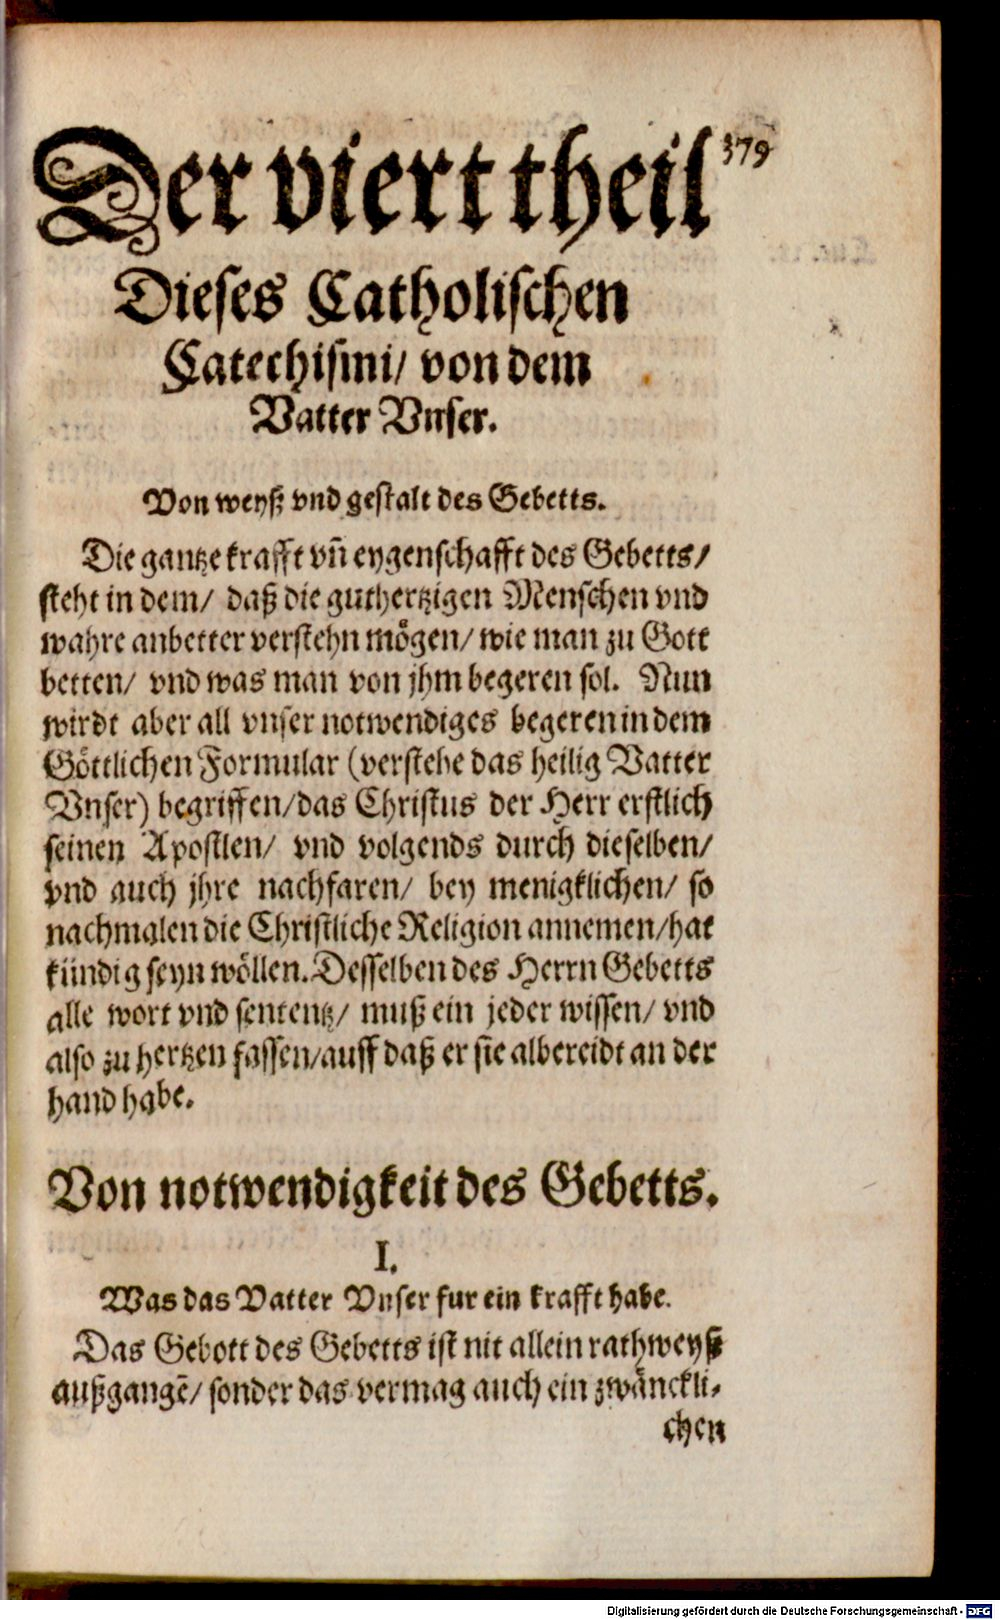 379
Der viert theil
Dieses Catholischen
Catechismi/ von dem
Vatter Vnser.
Von weyß vnd gestalt des Gebetts.
Die gantze krafft vñ eygenschafft des Gebetts/
steht in dem/ daß die guthertzigen Menschen vnd
wahre anbetter verstehn mögen/ wie man zu Gott
betten/ vnd was man von jhm begeren sol. Nun
wirdt aber all vnser notwendiges begeren in dem
Göttlichen Formular (verstehe das heilig Vatter
Vnser) begriffen/das Christus der Herr erstlich
seinen Apostlen/ vnd volgends durch dieselben/
vnd auch jhre nachfaren/ bey menigklichen/ so
nachmalen die Christliche Religion annemen/hat
kündig seyn wöllen. Desselben des Herrn Gebetts
alle wort vnd sententz/ muß ein jeder wissen/ vnd
also zu hertzen fassen/auff daß er sie albereidt an der
hand habe.
Von notwendigkeit des Gebetts.
I.
Was das Vatter Vnser fur ein krafft habe.
Das Gebott des Gebetts ist nit allein rathweyß
außgangē/ sonder das vermag auch ein zwänckli-
chen
Digitalisierung gefördert durch die Deutsche Forschungsgemeinschaft - DFG